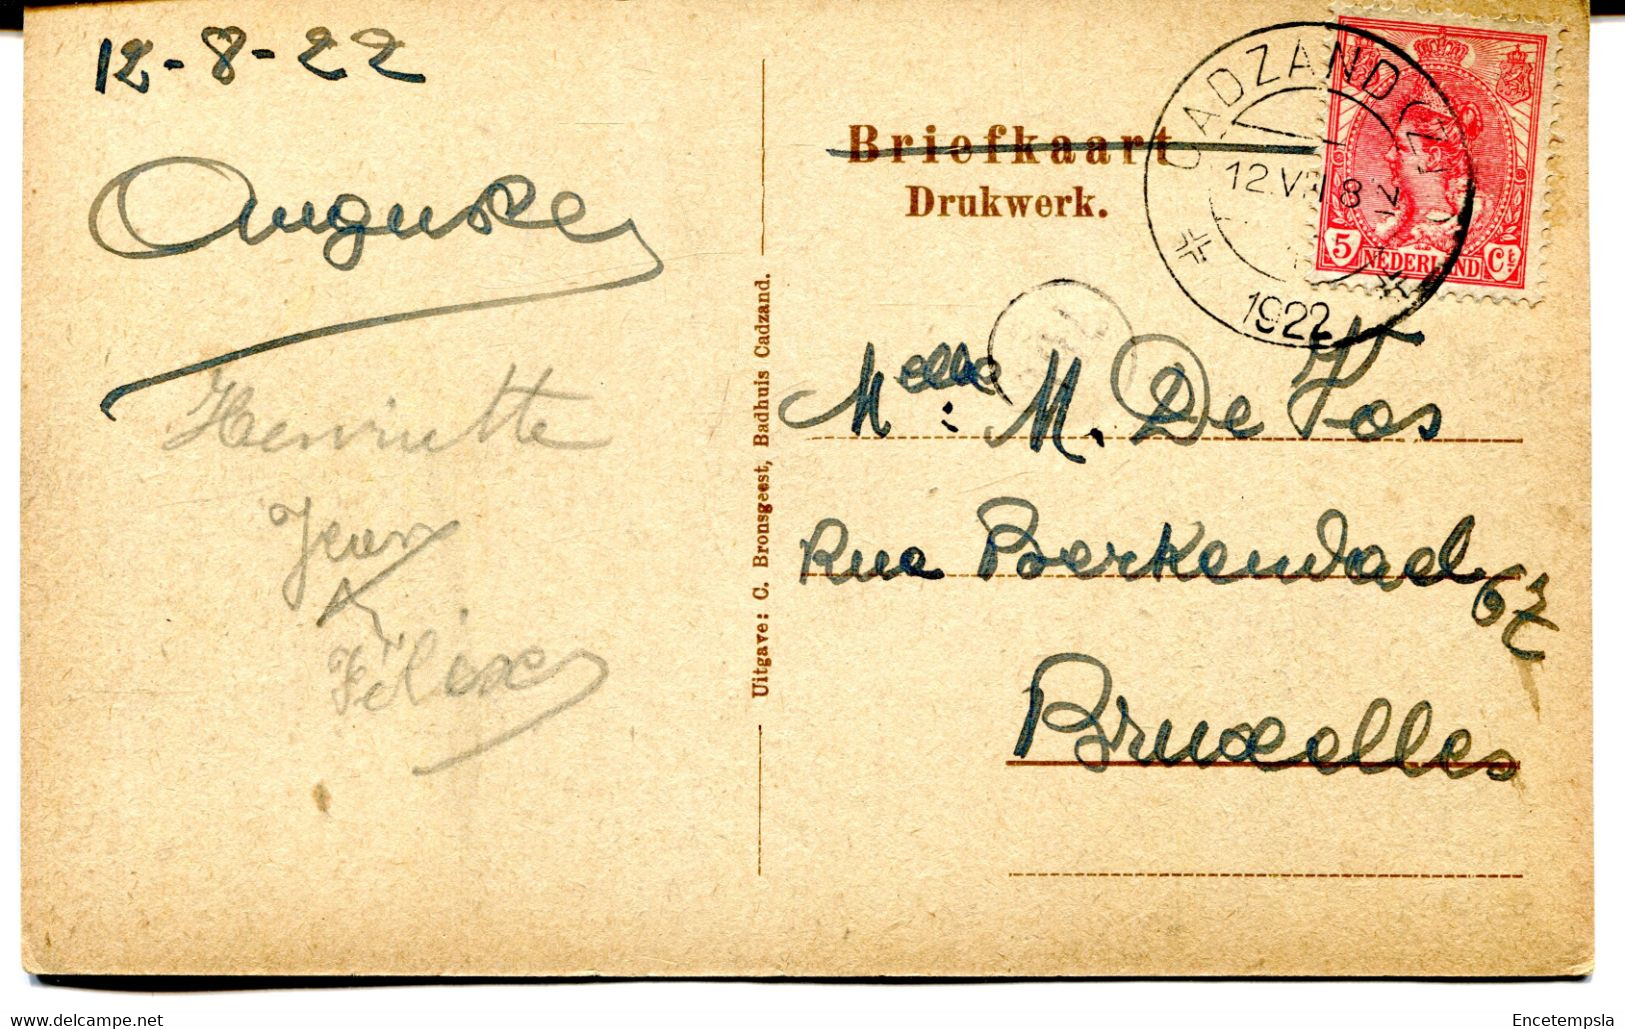 12-8-22
Auguste
Henriette
Jean
Félix
Uitgave: C. Bronsgeest, Badhuis Cadzand.
Briefkaart
Drukwerk.
CADZAND
12.VIII 8
1922
5 NEDERLAND Ct
Melle: M. De Vos
Rue Berkendael 67
Bruxelles
delcampe.net
Encetempsla